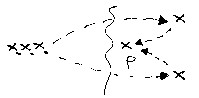 x
xxx x
P
x